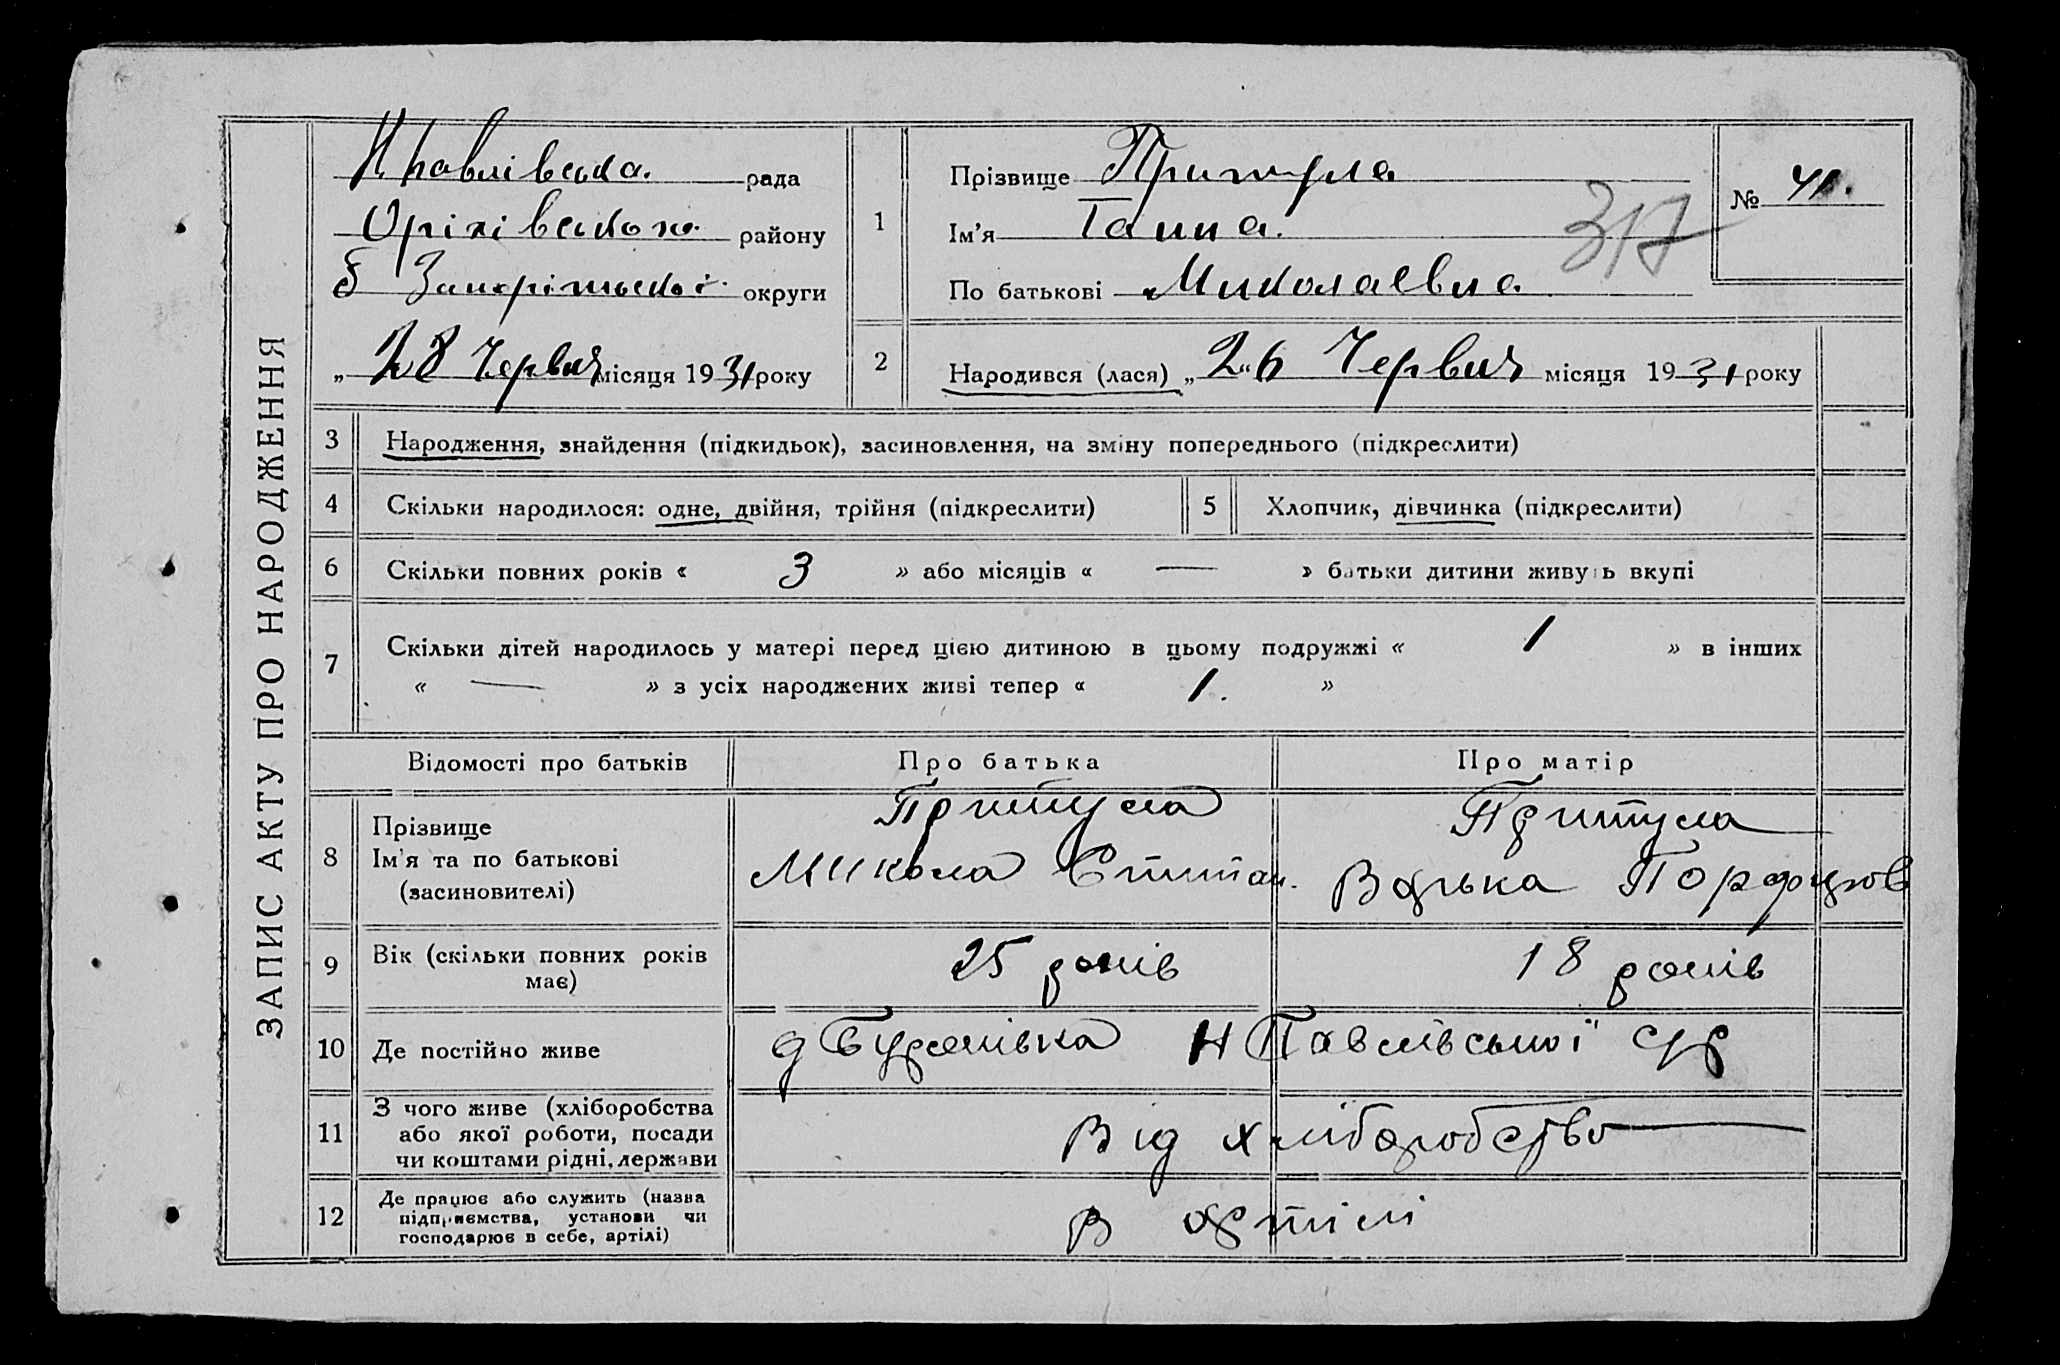 ЗАПИС АКТУ ПРО НАРОДЖЕННЯ
Н Павлівська рада
Оріхівського району
б Запорізської округи
„28 Червня місяця 1931 року
1
Прізвище Притула
Ім'я Ганна.
По батькові Миколаевна
№ 41.
317
2
Народився (лася) „26 Червня місяця 1931 року
3 Народження, знайдення (підкидьок), засиновлення, на зміну попереднього (підкреслити)
4 Скільки народилося: одне, двійня, трійня (підкреслити) 5 Хлопчик, дівчинка (підкреслити)
6 Скільки повних років « 3 » або місяців « — » батьки дитини живуть вкупі
7 Скільки дітей народилось у матері перед цією дитиною в цьому подружжі « 1 » в інших
« — » з усіх народжених живі тепер « 1. »
Відомості про батьків Про батька Про матір
8 Прізвище
Ім'я та по батькові
(засиновителі)
Притула
Микола
Притула
Варька
9 Вік (скільки повних років
має)
25 років 18 років
10 Де постійно живе Н Павлівської с/р
11 З чого живе (хліборобства
або якої роботи, посади
чи коштами рідні, держави
Від хліборобство
12 Де працює або служить (назва
підприємства, установи чи
господарює в себе, артілі)
В артілі